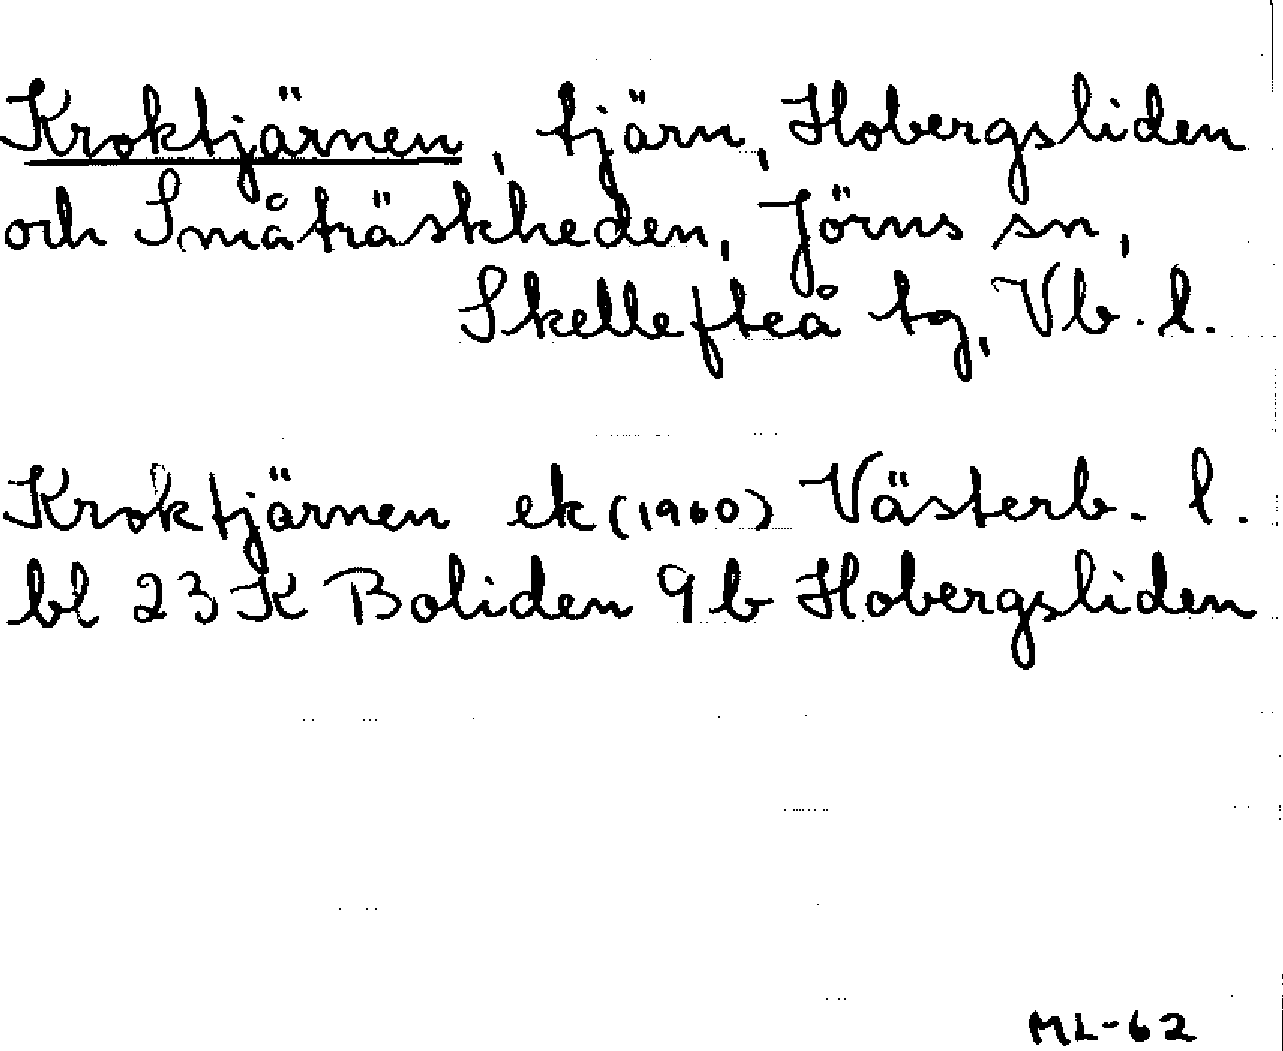 Kroktjärnen, tjärn, Hobergsliden
och Småträskheden, Jörns sn,
Skellefteå tg, Vb. l.
Kroktjärnen ek (1960) Västerb. l.
bl 23 K Boliden 9 b Hobergsliden
ML-62